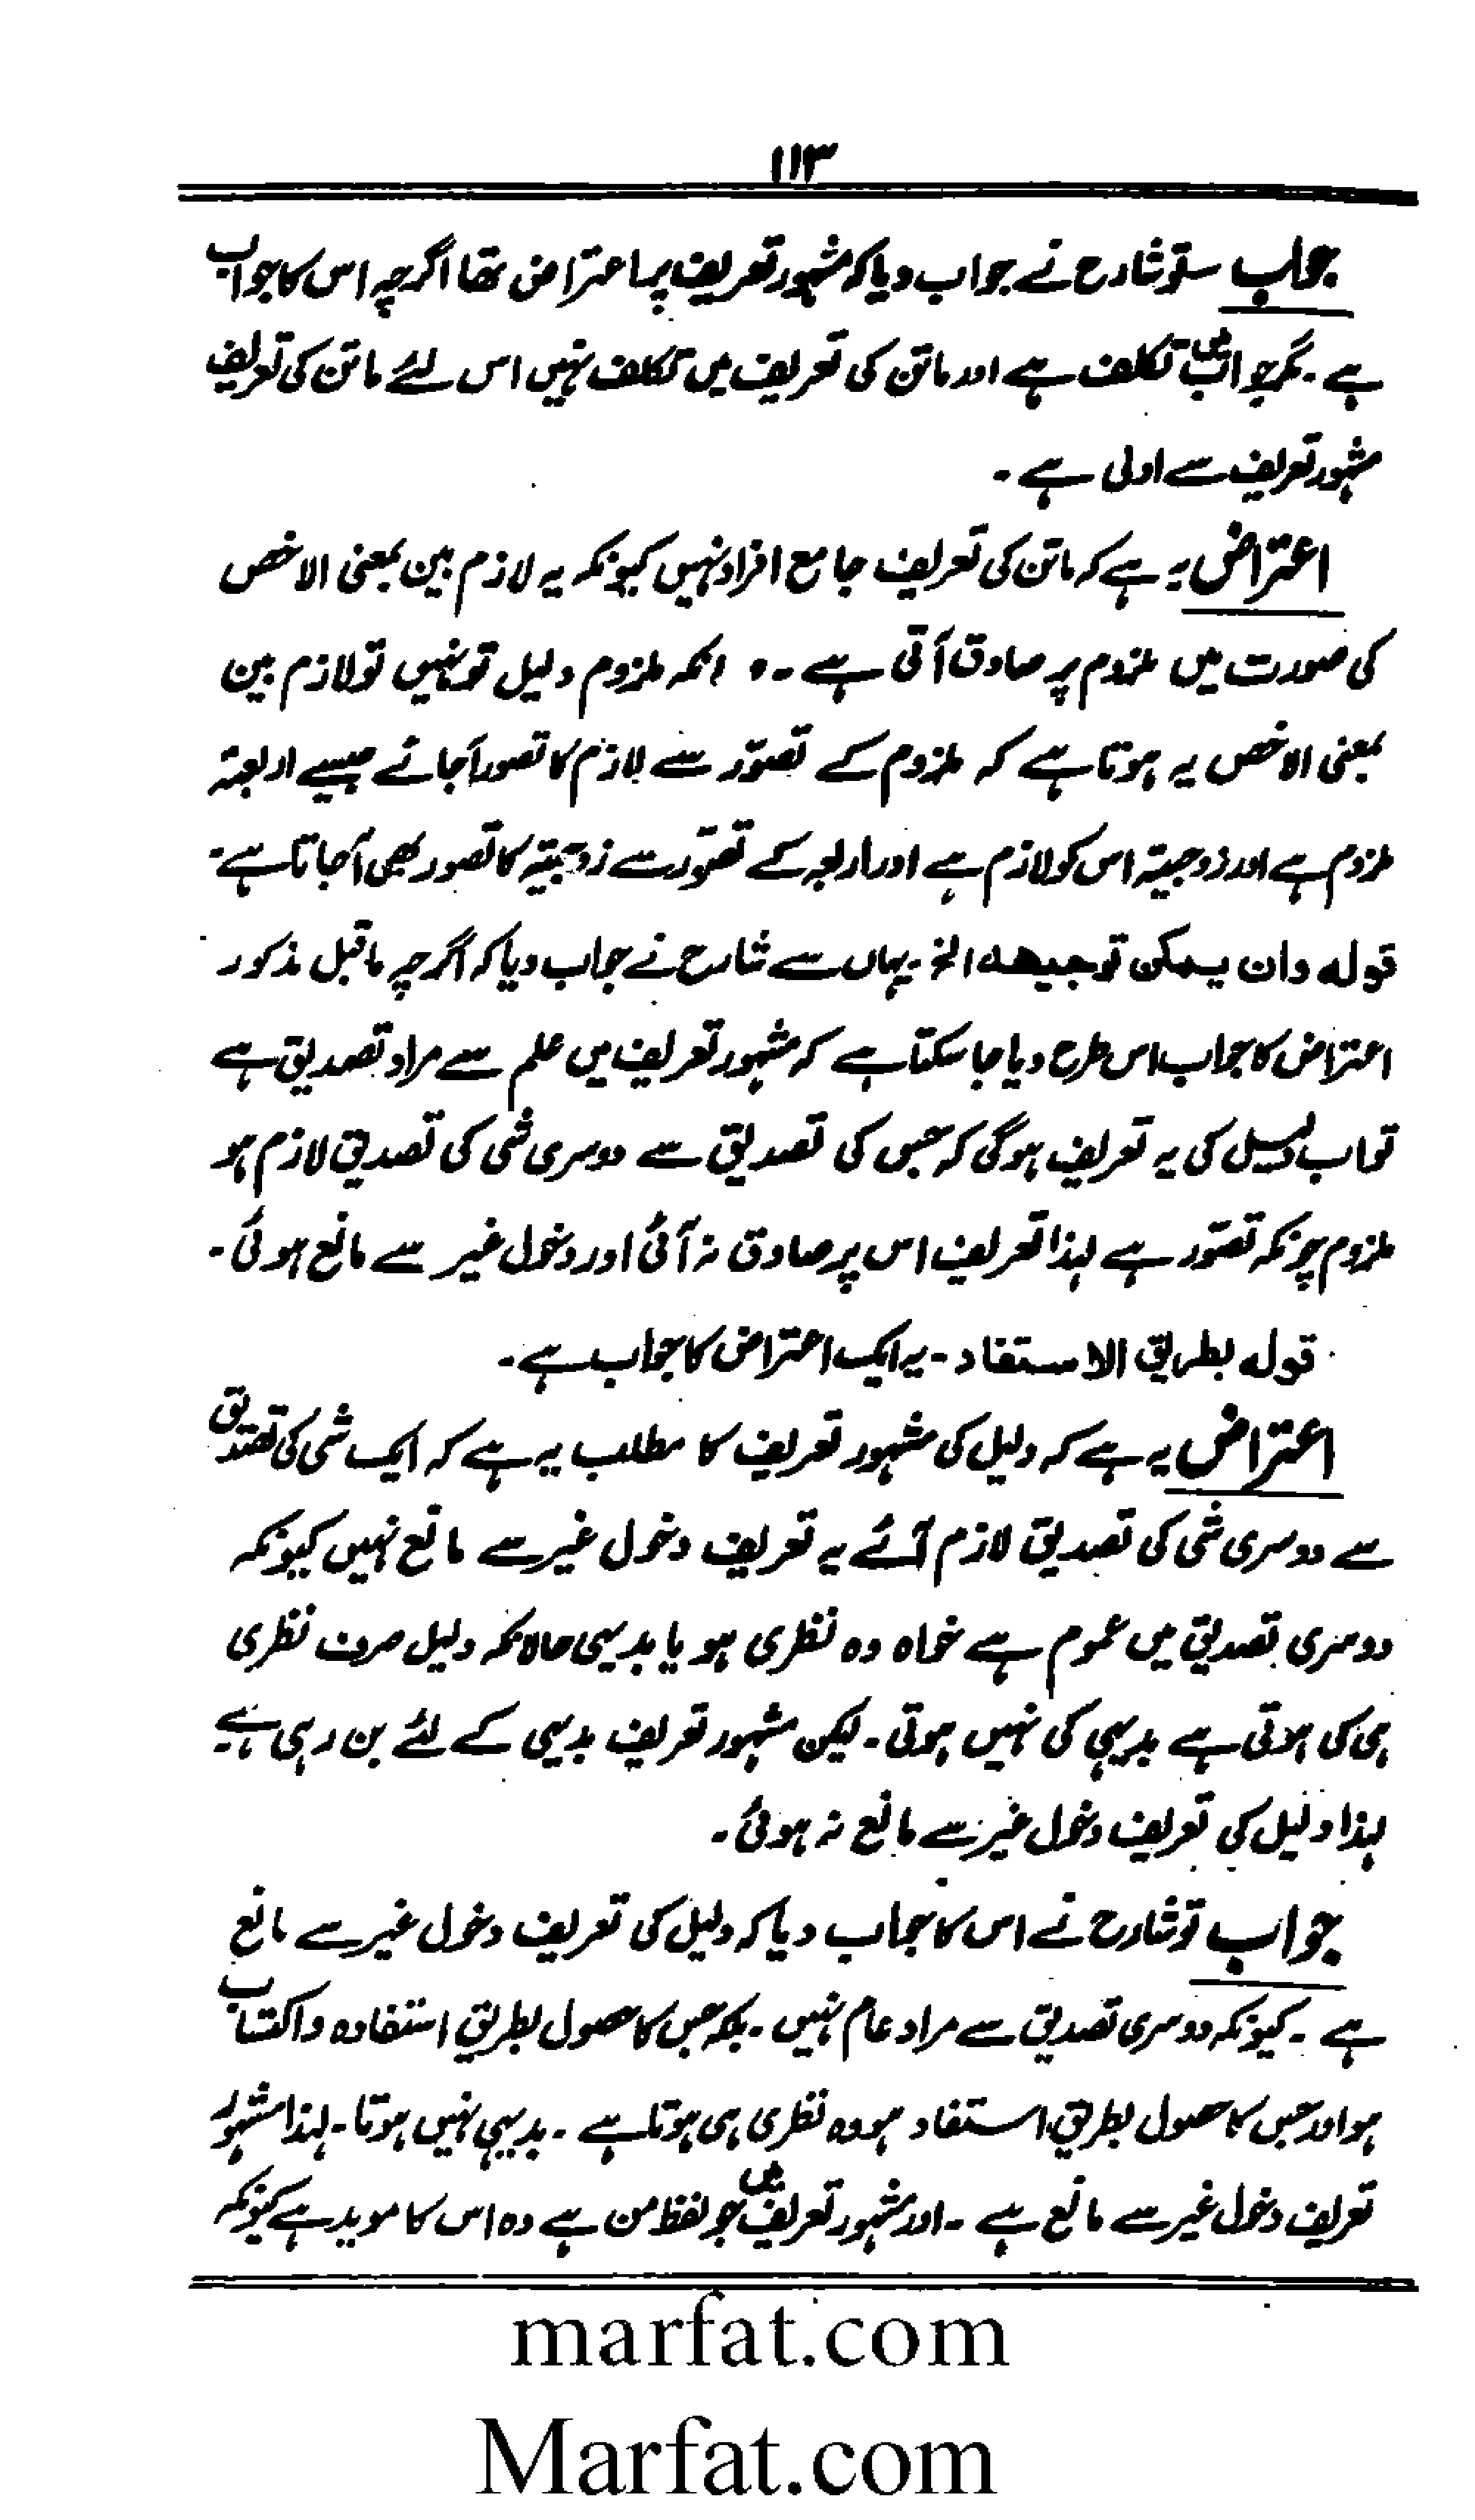 ۱۱۳
جواب ستو شارح نے جواب دیا کہ مشہور تعریف پر اعتراض تھا اگرچہ اس کا جواب
ہے ۔ مگر جواب میں تکلف ہے اور ماتن کی تعریف میں تکلف نہیں اس لئے ماتن کی تعریف
مشہور تعریف سے اولی ہے ۔
اعتراض یہ ہے کہ ماتن کی تعریف جامع افراد نہیں کیونکہ یہ لازم بین بمعنی الاخص
کی صورت میں ملزوم پر صادق آتی ہے ۔ ملزوم دلیل تو نہیں تو لازم بین
بمعنی الاخص یہ ہوتا ہے کہ ملزوم کے تصوّر سے لازم کا تصور آجائے جیسے اربعۃ
ملزوم ہے اور زوجیۃ اس کو لازم ہے اور اربعہ کے تصوّر سے زوجیۃ کا تصور بھی آجاتا ہے ۔
قولہ وان یمکن توجیھہ الخ ۔ یہاں سے شارح نے جواب دیا کہ اگرچہ ماقبل مذکور
اعتراض کا جواب اس طرح دیا جا سکتا ہے کہ مشہور تعریف میں علم سے مراد تصدیق ہے
تو اب دلیل کی یہ تعریف ہوگی کہ جس کی تصدیق سے دوسری شی کی تصدیق لازم ہو
ملزوم چونکہ تصوّر ہے لہذا تعریف اس پر صادق نہ آئی اور دخول غیر سے مانع ہوئی ۔
قولہ بطریق الاستفاد ۔ یہ ایک اعتراض کا جواب ہے ۔
اعتراض یہ ہے کہ دلیل کی مشہور تعریف کا مطلب یہ ہے کہ ایک شی کی تصدیق
سے دوسری شی کی تصدیق لازم آئے یہ تعریف دخول غیر سے مانع نہیں کیونکہ
دوسری تصدیق میں عموم ہے خواہ وہ نظری ہو یا بدیہی حالانکہ دلیل صرف نظری
ہی کی ہوتی ہے بدیہی کی نہیں ہوتی ۔ لیکن مشہور تعریف بدیہی کے لئے بن رہی ہے
لہذا دلیل کی تعریف دخول غیر سے مانع نہ ہوئی ۔
جواب تو شارح نے اس کا جواب دیا کہ دلیل کی تعریف دخول غیر سے مانع
ہے ۔ کیونکہ دوسری تصدیق سے مراد عام نہیں ۔ بلکہ جس کا حصول بطریق استفادہ و اکتساب
ہو اور جس کا حصول بطریق استفاد ہو وہ نظری ہی ہوتا ہے ۔ بدیہی نہیں ہوتا ۔ لہذا مشہور
تعریف دخول غیر سے مانع ہے ۔ اور مشہور تعریف میں جو لفظ من ہے وہ اس کا موید ہے کیونکہ
marfat.com
Marfat.com